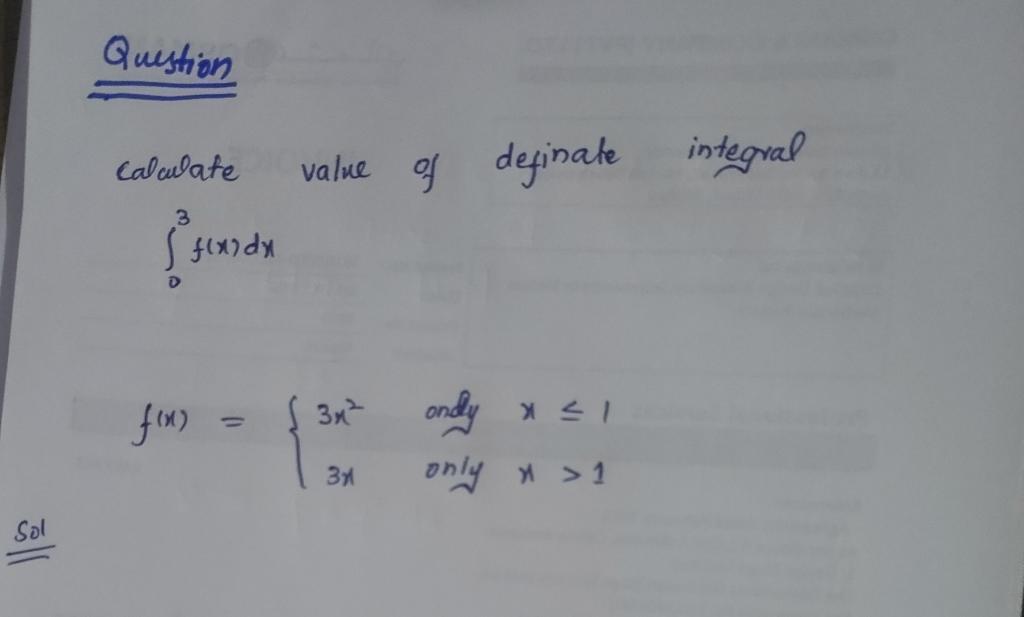 Question
calculate value of definate integral
∫₀³ f(x) dx
f(x) = { 3x² only x ≤ 1
3x only x > 1
Sol